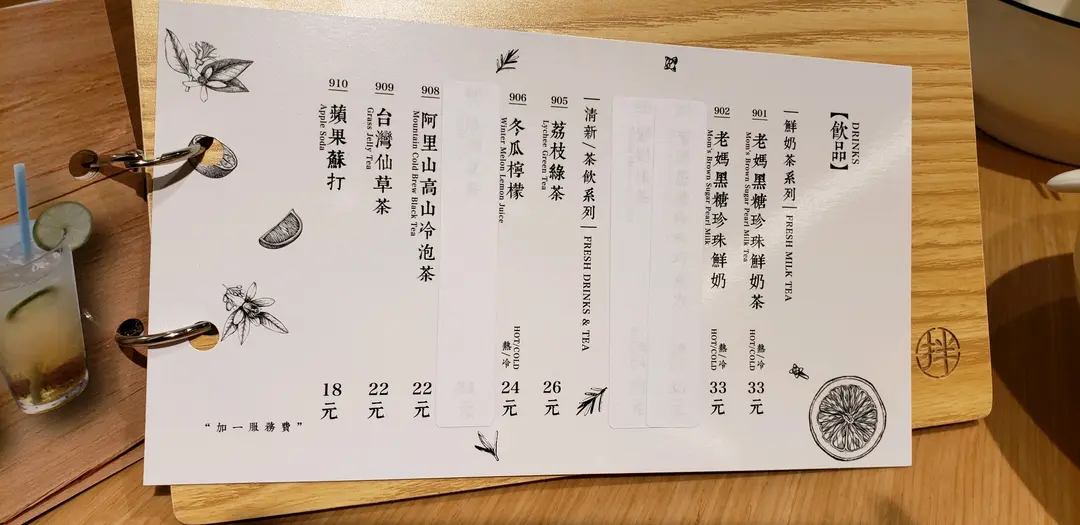 DRINKS
【飲品】
鮮奶茶系列 | FRESH MILK TEA
901 老媽黑糖珍珠鮮奶茶 熱/冷 33元
Mom's Brown Sugar Pearl Milk Tea HOT/COLD
902 老媽黑糖珍珠鮮奶 熱/冷 33元
Mom's Brown Sugar Pearl Milk HOT/COLD
清新/茶飲系列 | FRESH DRINKS & TEA
905 荔枝綠茶 26元
Lychee Green Tea
906 冬瓜檸檬 HOT/COLD 24元
Winter Melon Lemon Juice 熱/冷
908 阿里山高山冷泡茶 22元
Mountain Cold Brew Black Tea
909 台灣仙草茶 22元
Grass Jelly Tea
910 蘋果蘇打 18元
Apple Soda
“加一服務費”
拌